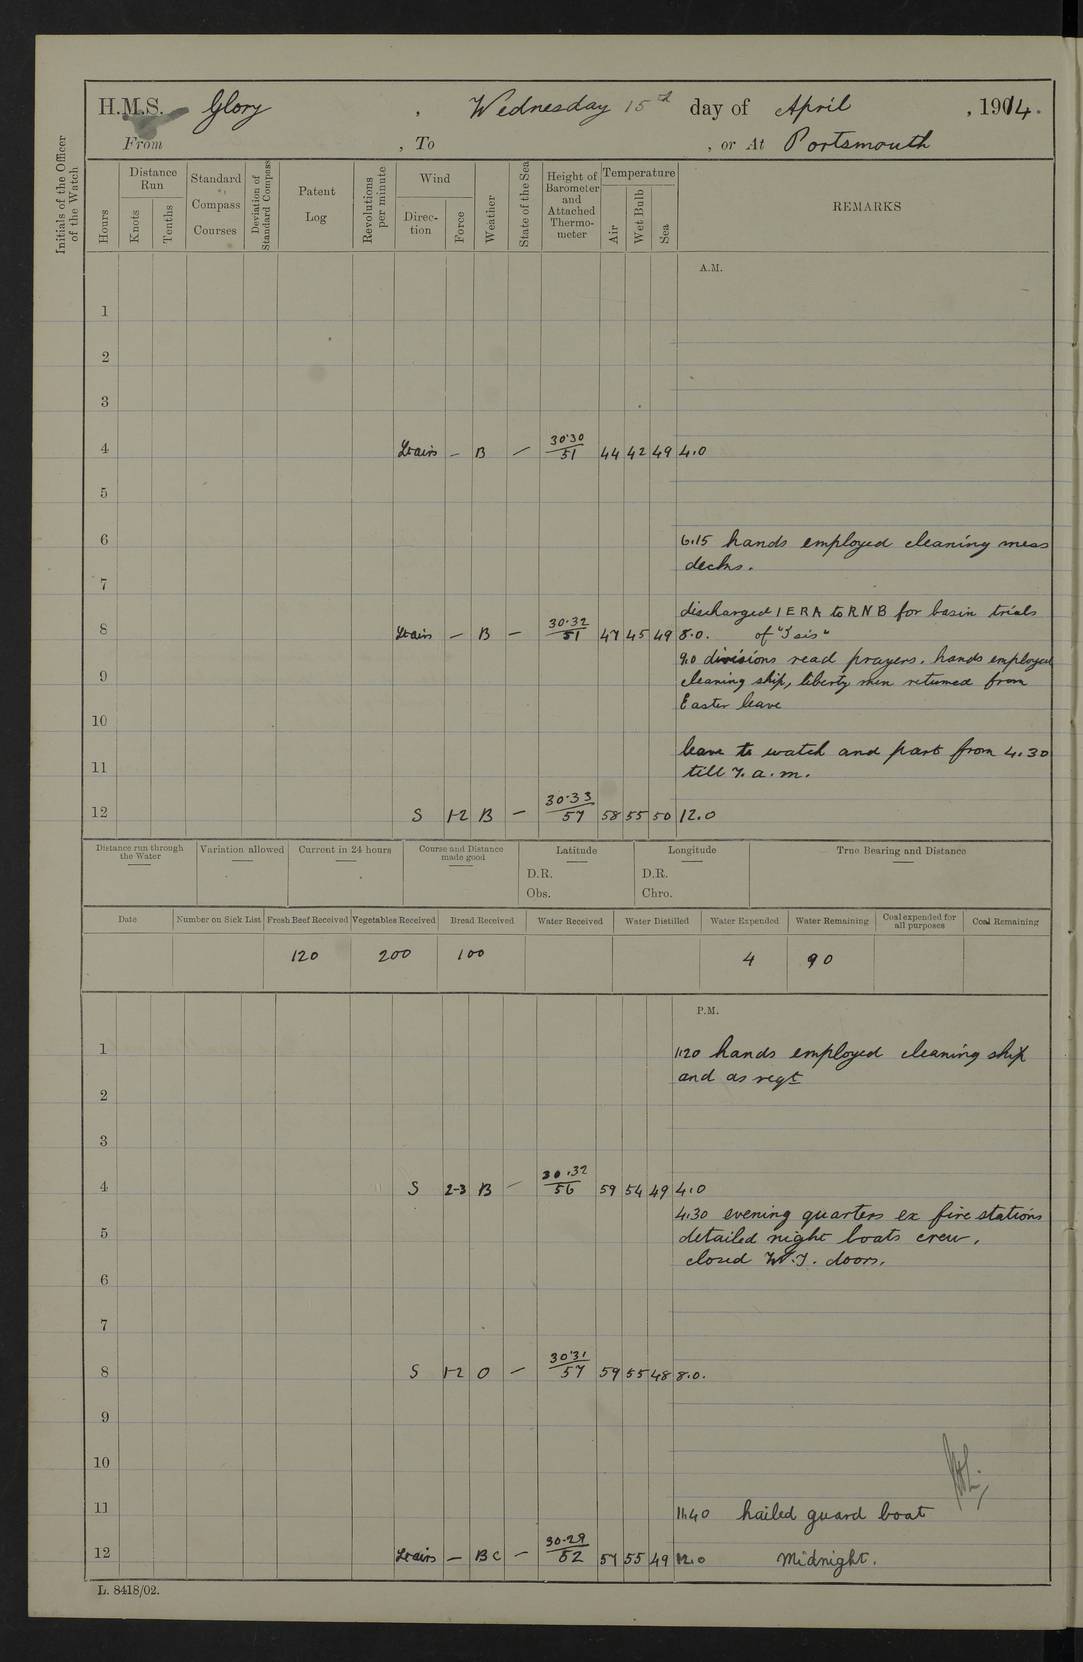 H.M.S. Glory , Wednesday 15th day of April , 1914.
From , To , or At Portsmouth
Initials of the Officer of the Watch
Hours
Distance Run
Knots
Tenths
Standard Compass Courses
Deviation of Standard Compass
Patent Log
Revolutions per minute
Wind
Direc-tion
Force
Weather
State of the Sea
Height of Barometer and Attached Thermo-meter
Temperature
Air
Wet Bulb
Sea
REMARKS
A.M.
1
2
3
4 Lt airs — B — 30.30/51 44 42 49 4.0
5
6 6.15 hands employed cleaning mess
decks.
7
discharged 1 ERA to RNB for basin trials
8 Lt airs — B — 30.32/51 47 45 49 8.0. of "Isis"
9.0 divisions read prayers. hands employed
9 cleaning ship, liberty men returned from
Easter leave
10
leave to watch and part from 4.30
11 till 7. a.m.
12 S 1-2 B — 30.33/57 58 55 50 12.0
Distance run through the Water
Variation allowed
Current in 24 hours
Course and Distance made good
Latitude
D.R.
Obs.
Longitude
D.R.
Chro.
True Bearing and Distance
Date Number on Sick List Fresh Beef Received Vegetables Received Bread Received Water Received Water Distilled Water Expended Water Remaining Coal expended for all purposes Coal Remaining
120 200 100 4 90
P.M.
1 1.20 hands employed cleaning ship
and as reqt
2
3
4 S 2-3 B — 30.32/56 59 54 49 4.0
4.30 evening quarters ex fire stations
5 detailed night boats crew.
closed W.T. doors.
6
7
8 S 1-2 O — 30.31/57 59 55 48 8.0.
9
10
11 11.40 hailed guard boat
12 Lt airs — BC — 30.29/52 57 55 49 12.0 Midnight.
L. 8418/02.